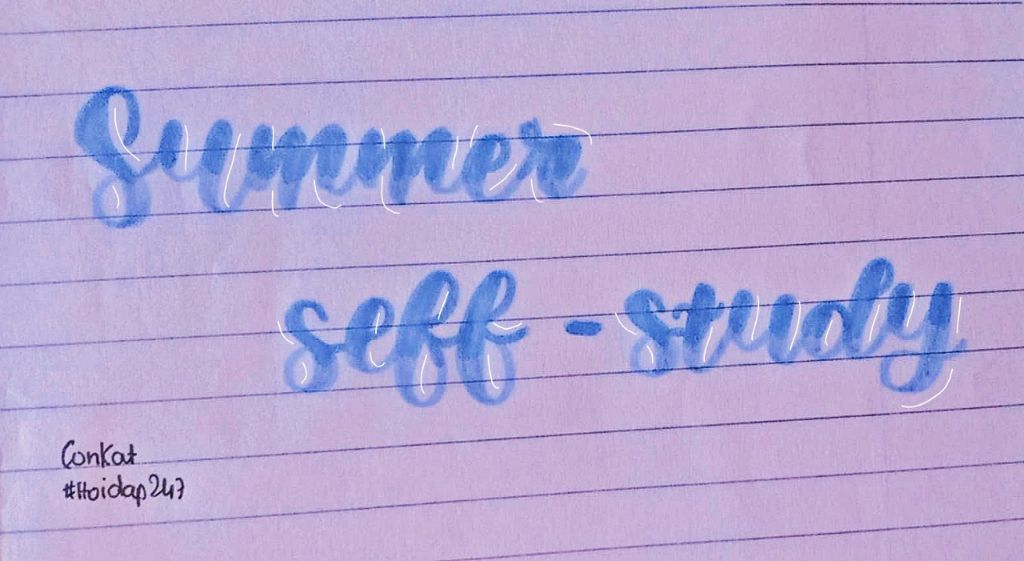 Summer
seff - study
ConKat
#Hoidap247